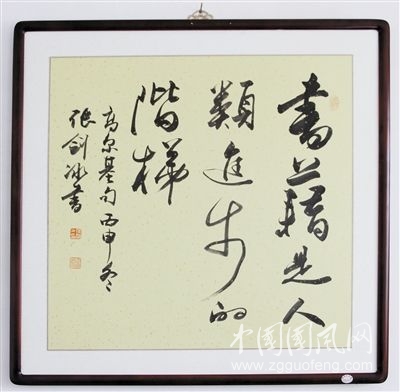 書藉是人
類進步的
階梯
高尔基句丙申冬
張剑冰書
中国国风网
www.zgguofeng.com